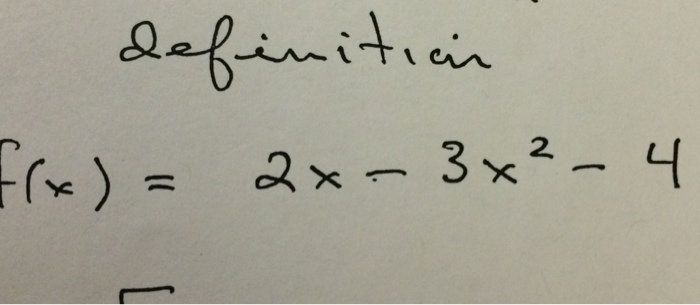 definition
f(x) = 2x - 3x² - 4